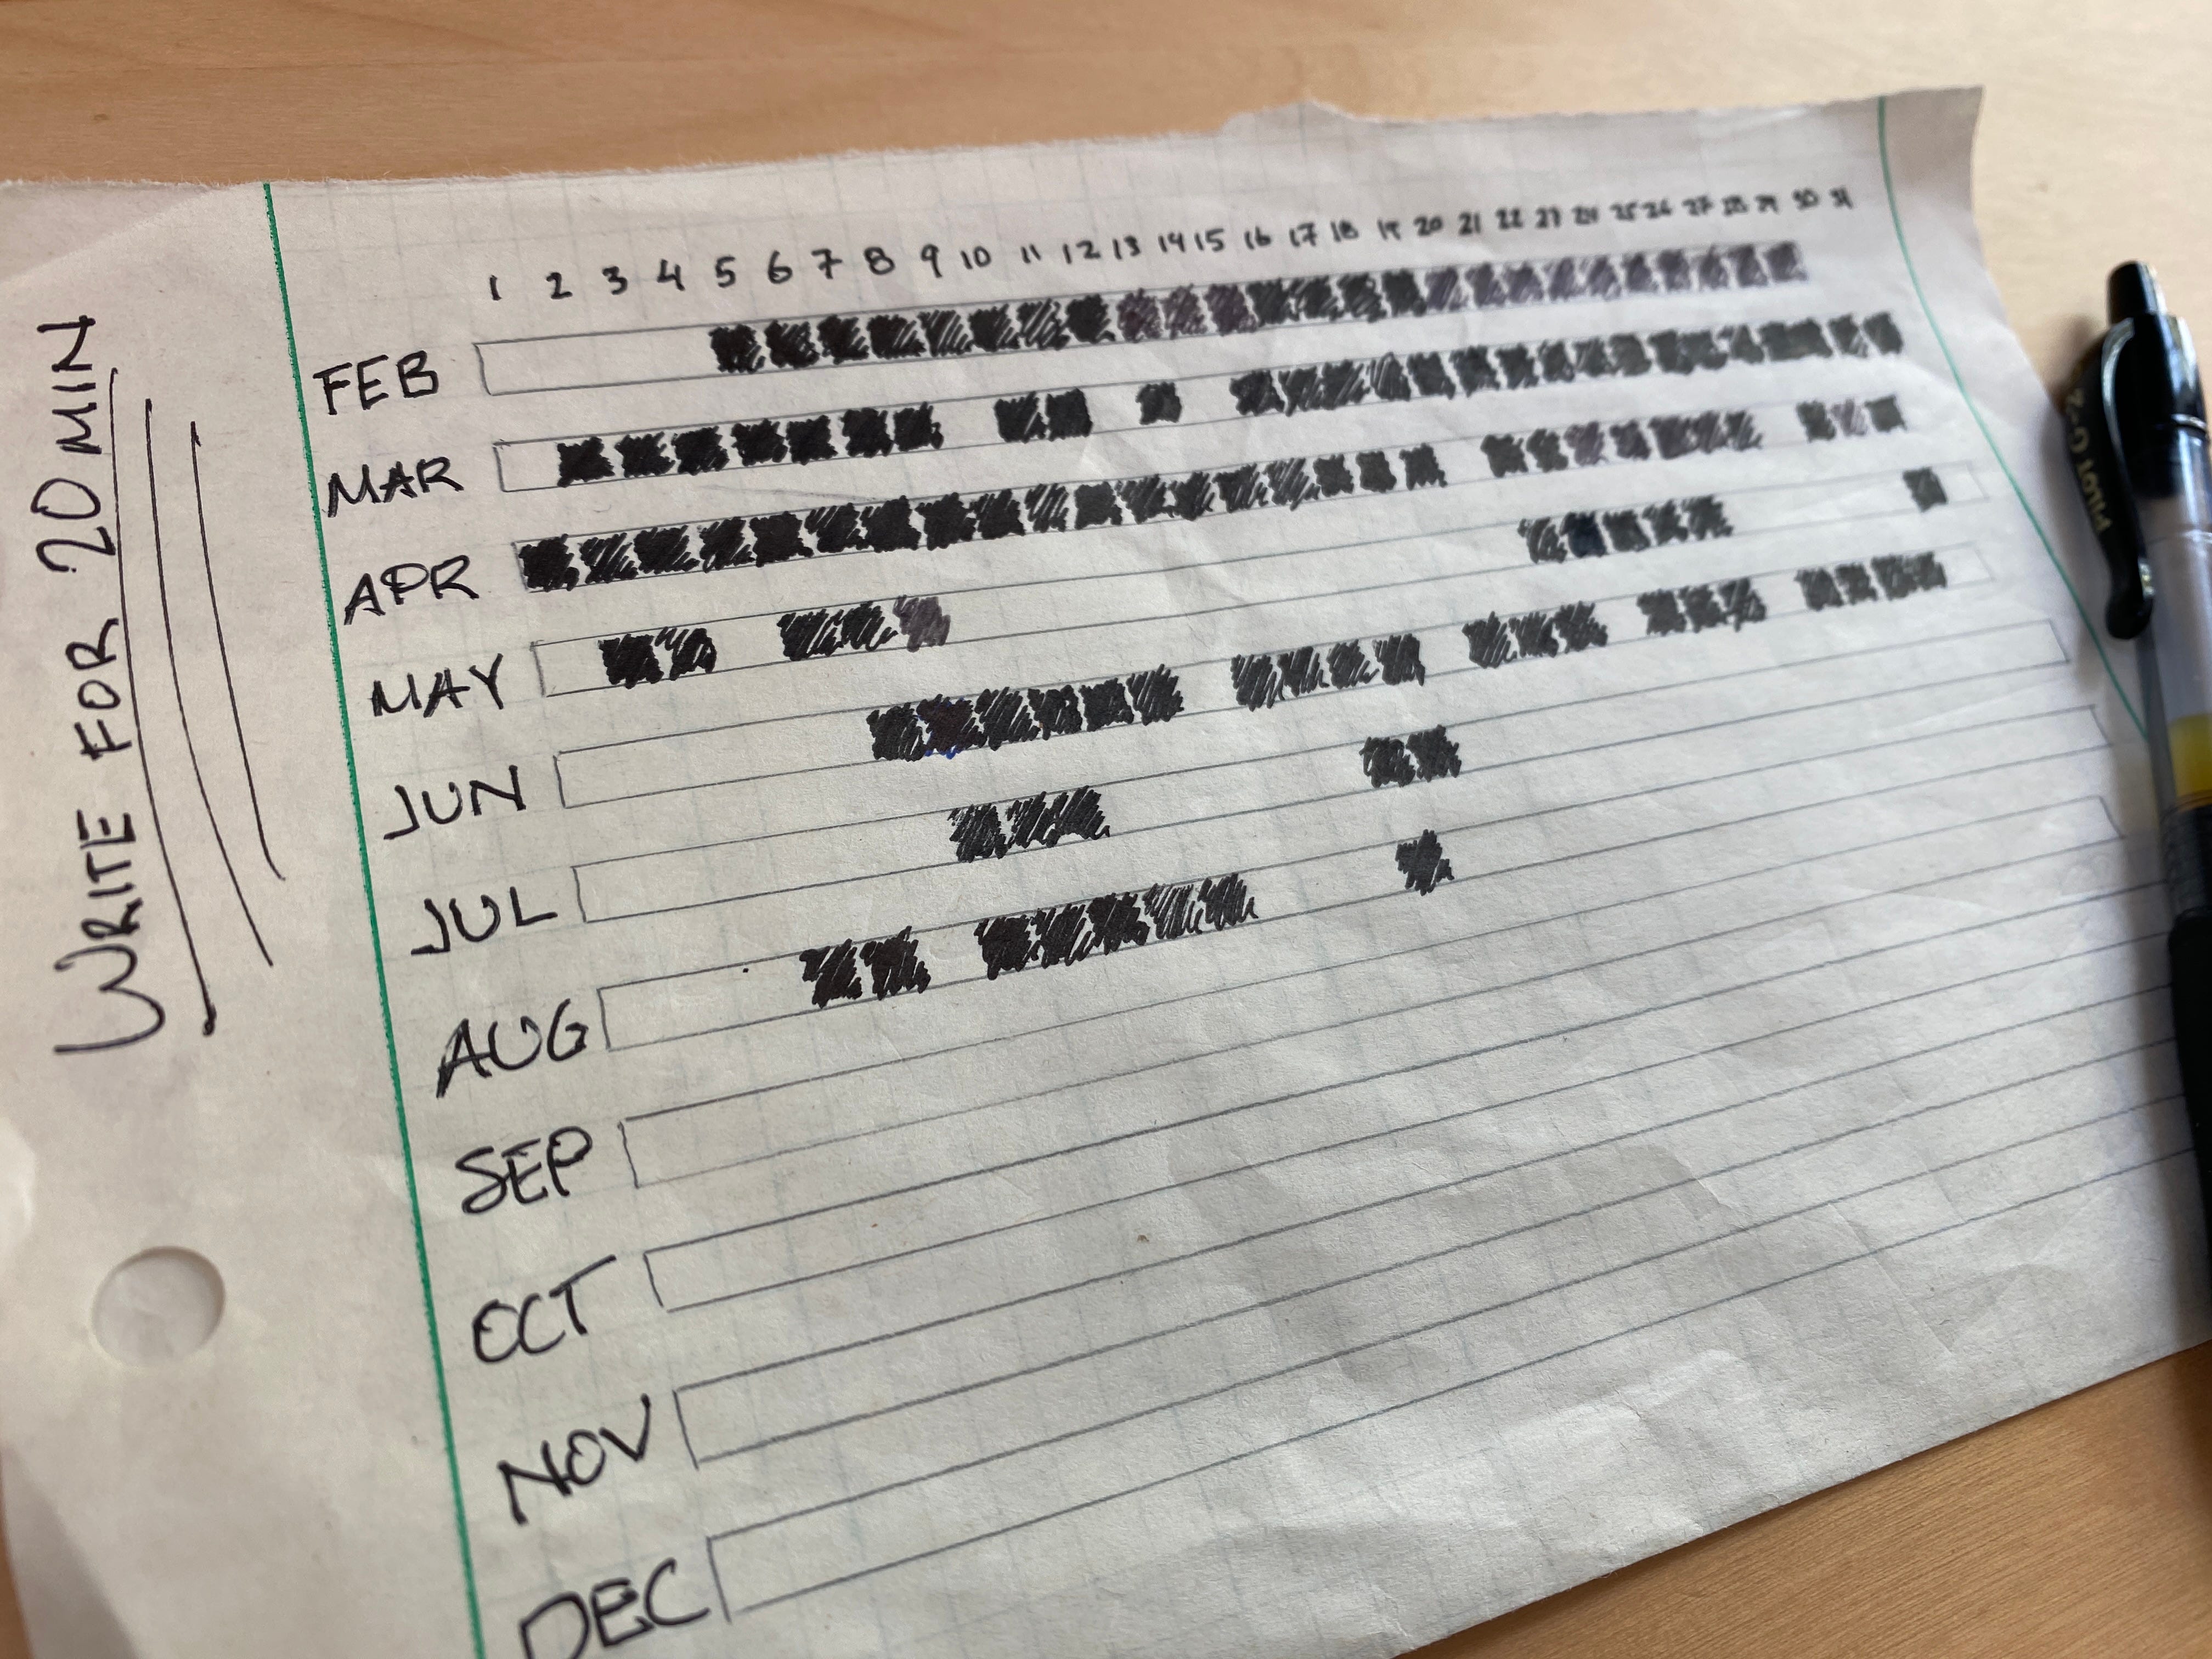 WRITE FOR 20 MIN
1 2 3 4 5 6 7 8 9 10 11 12 13 14 15 16 17 18 19 20 21 22 23 24 25 26 27 28 29 30 31
FEB
MAR
APR
MAY
JUN
JUL
AUG
SEP
OCT
NOV
DEC
PILOT G-2